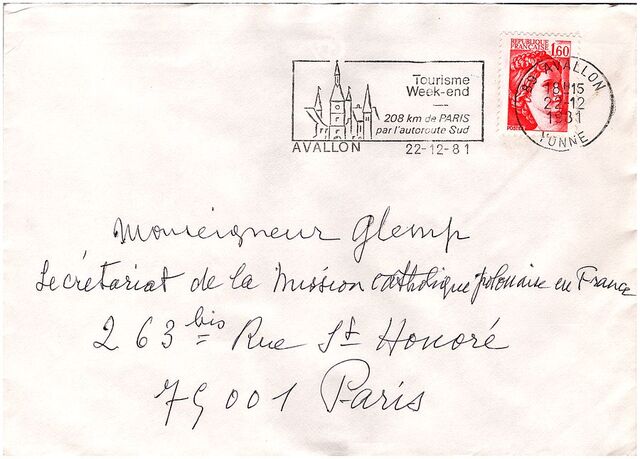 Tourisme
Week-end
208 km de PARIS
par l'autoroute Sud
AVALLON 22-12-81
REPUBLIQUE
FRANÇAISE 1,60
POSTES
AVALLON
18H15
22-12
1981
YONNE
Monseigneur Glemp
Secrétariat de la Mission catholique polonaise en France
263 bis Rue St Honoré
75001 Paris